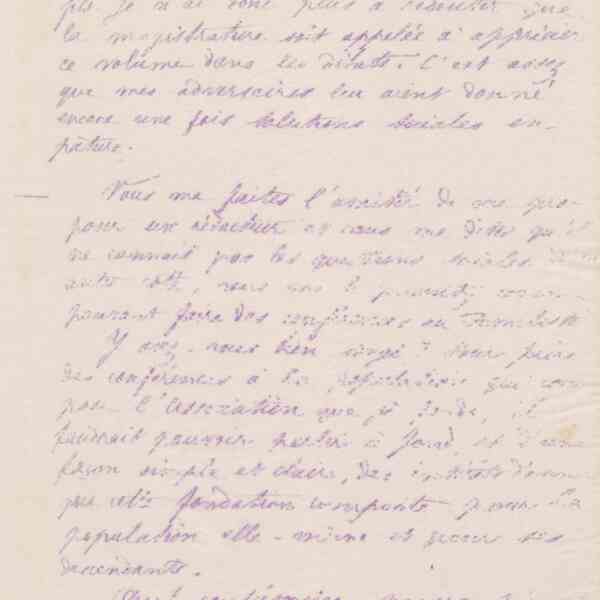 pls. Je n'ai donc plus à redouter que
la magistrature soit appelée à apprécier
ce volume dans les débats. C'est assez
que mes adversaires leur aient donné
encore une fois Solutions sociales en
pâture.
Vous me faites l'amitié de me pro-
poser un rédacteur et vous me dites qu'il
ne connait pas les questions sociales. D'un
autre côté, vous me le
pouvant faire des conférences au Familistère
Y avez-vous bien songé ? Pour faire
des conférences à la population qui com-
pose l'association que j'ai fondée, il
faudrait pouvoir parler à fond, et d'une
façon simple et claire, des intérêts
que cette fondation comporte pour la
population elle-même et pour ses
descendants.